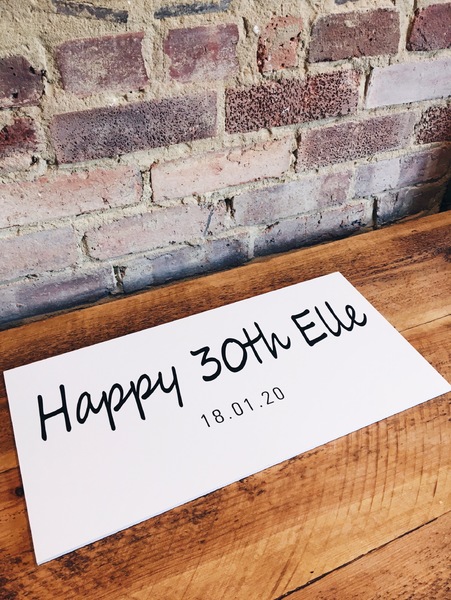 Happy 30th Elle
18.01.20